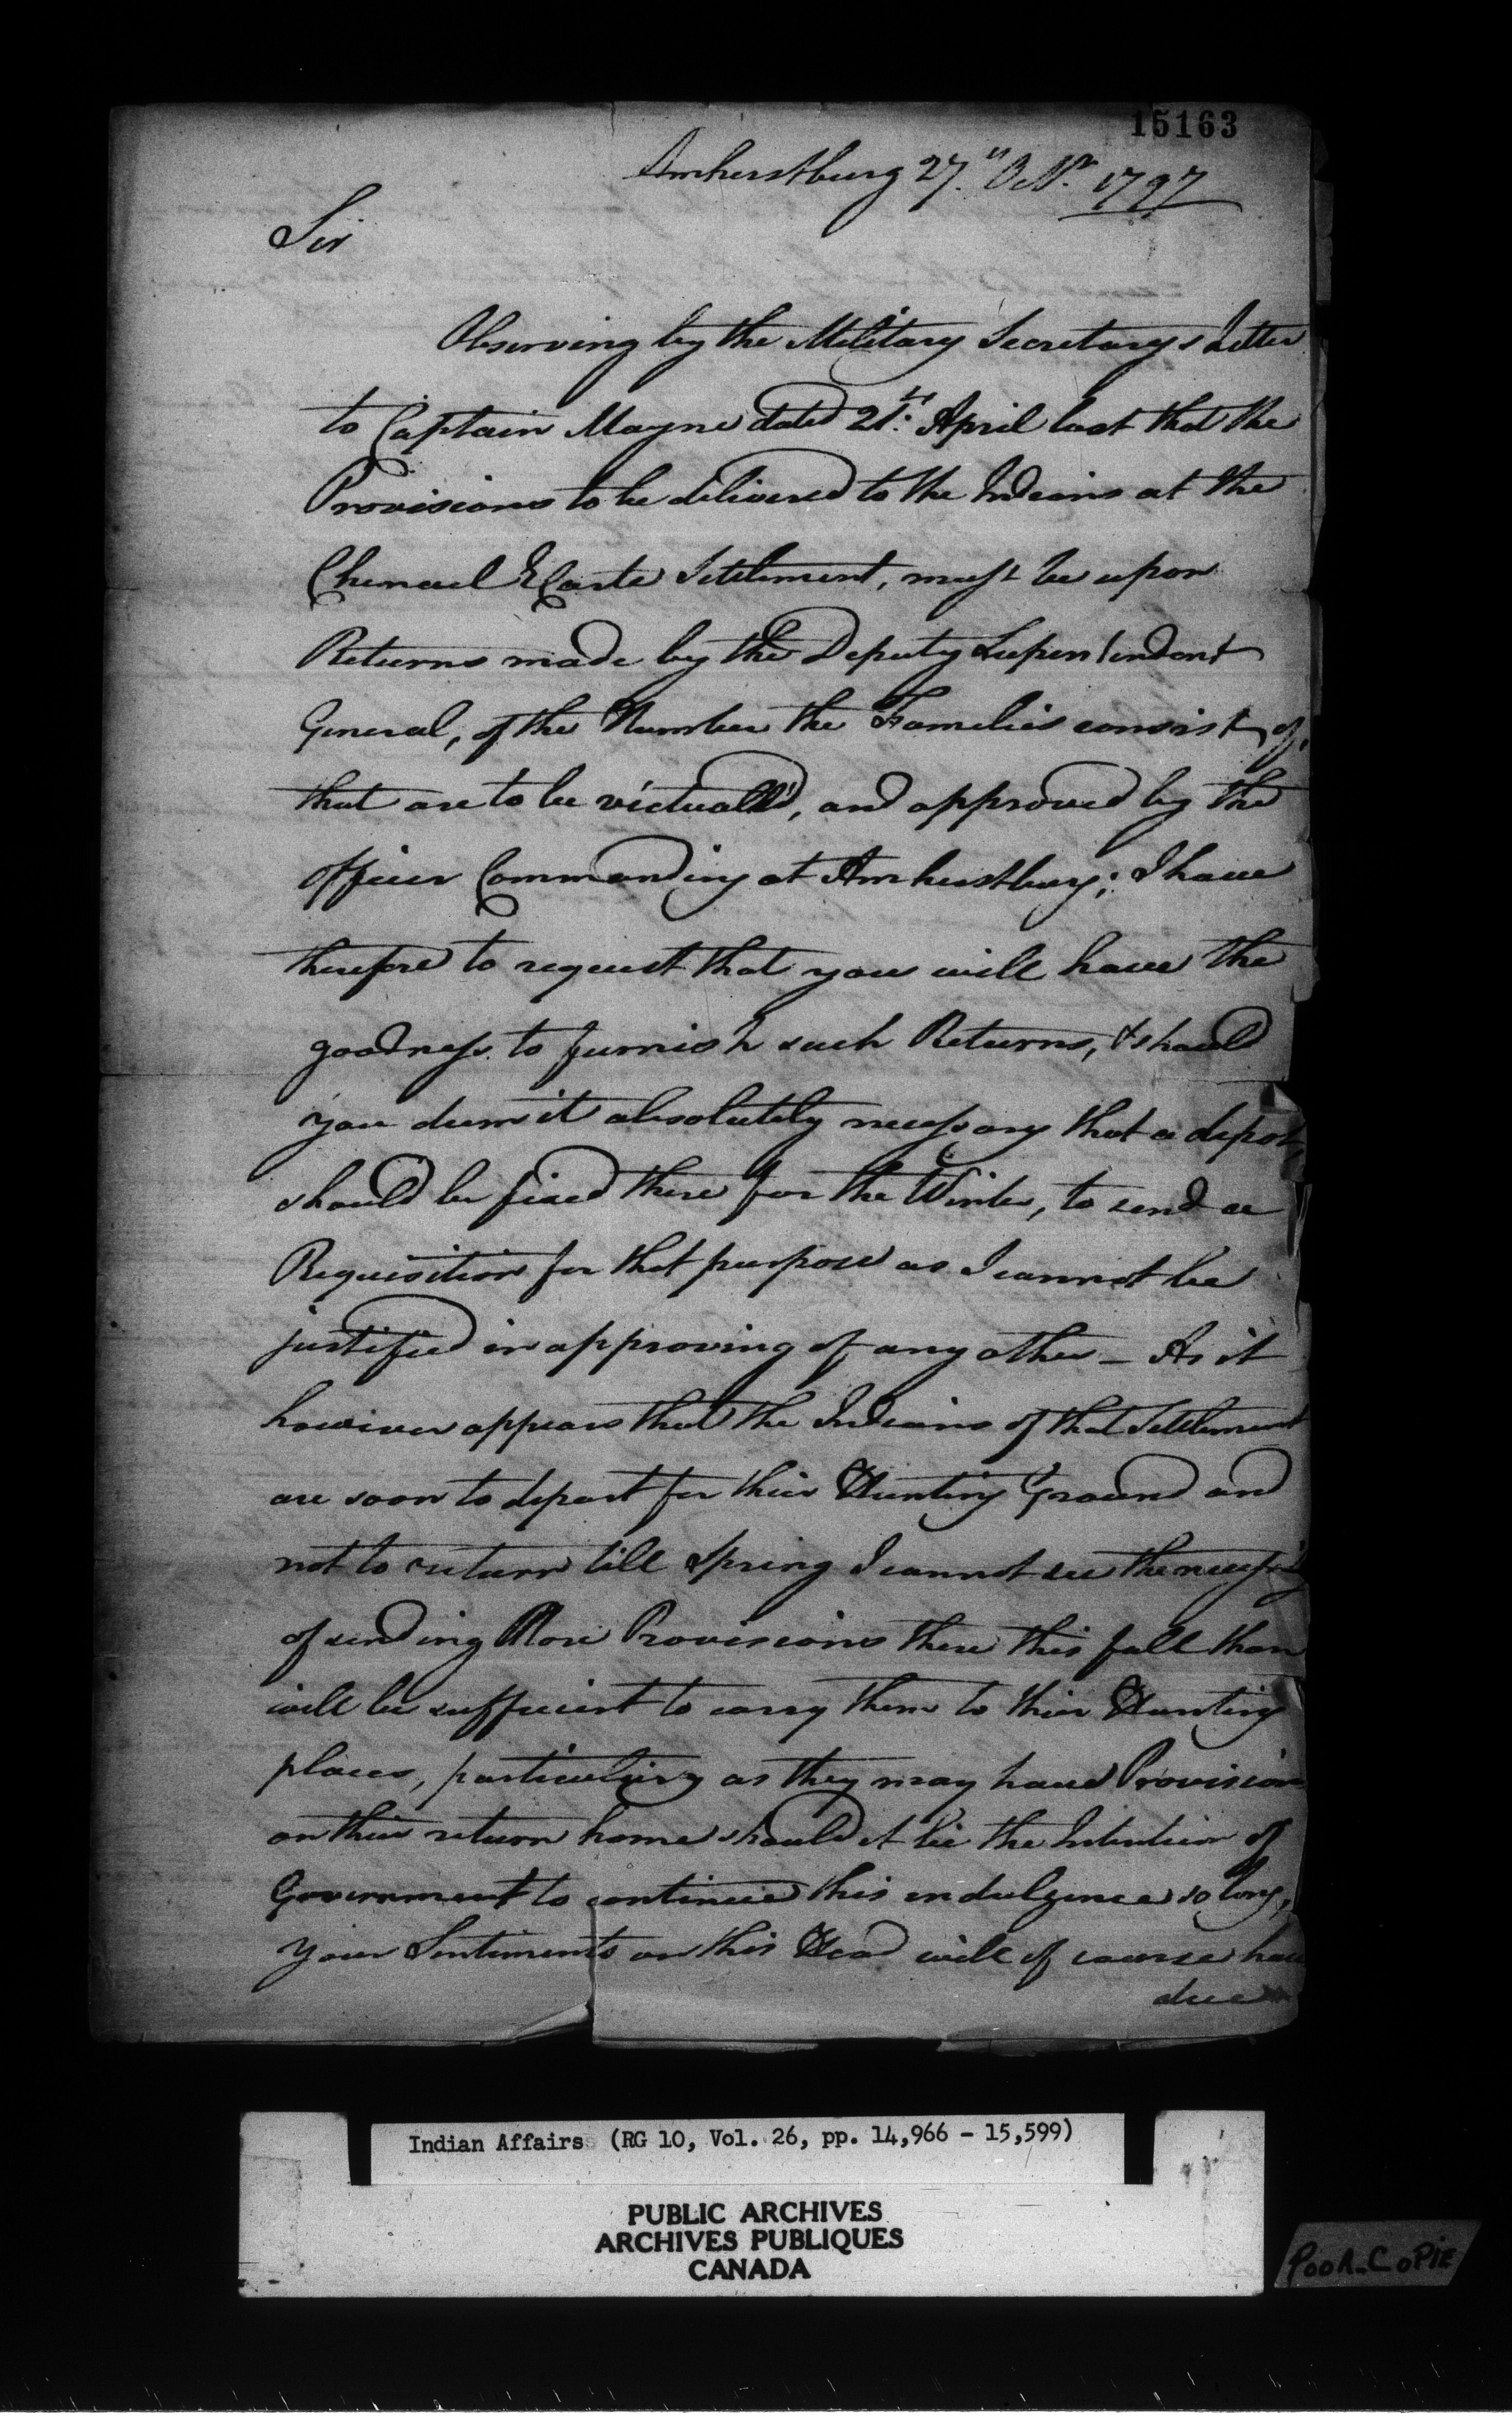 15163
Amherstburg 27.th Octr. 1797
Sir
Observing by the Military Secretarys Letter
to Captain Mayne dated 21st. April last that the
Provisions to be delivered to the Indians at the
Chenail Ecarte Settlement, must be upon
Returns made by the Deputy Superintendant
General, of the Number the Families consist of,
that are to be victuall'd, and approved by the
officer Commanding at Amherstburg; I have
therefore to request that you will have the
goodness to furnish such Returns, & should
you deem it absolutely necessary that a depot,
should be fixed there for the Winter, to send a
Requisition for that purpose as I cannot be
justified in approving of any other – As it
however appears that the Indians of that Settlement
are soon to depart for their Hunting Ground and
not to return till Spring I cannot see the necessity
of sending More Provisions there this fall than
will be sufficient to carry them to their Hunting
places, particulary as they may have Provisions
on their return home should it be the Intention of
Government to continue this indulgence so long,
your Sentiments on this Head will of course have
due
Indian Affairs (RG 10, Vol. 26, pp. 14,966 - 15,599)
PUBLIC ARCHIVES
ARCHIVES PUBLIQUES
CANADA
POOR_COPIE